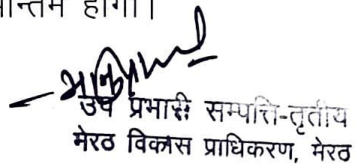 होगा।
उप प्रभारी सम्पत्ति-तृतीय
मेरठ विकास प्राधिकरण, मेरठ